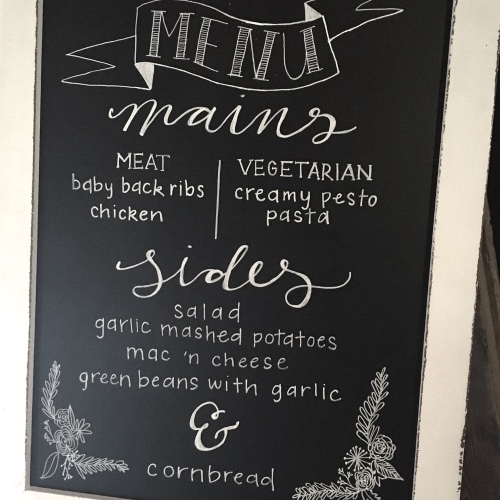 MENU
mains
MEAT
baby back ribs
chicken
VEGETARIAN
creamy pesto
pasta
sides
salad
garlic mashed potatoes
mac 'n cheese
green beans with garlic
&
cornbread